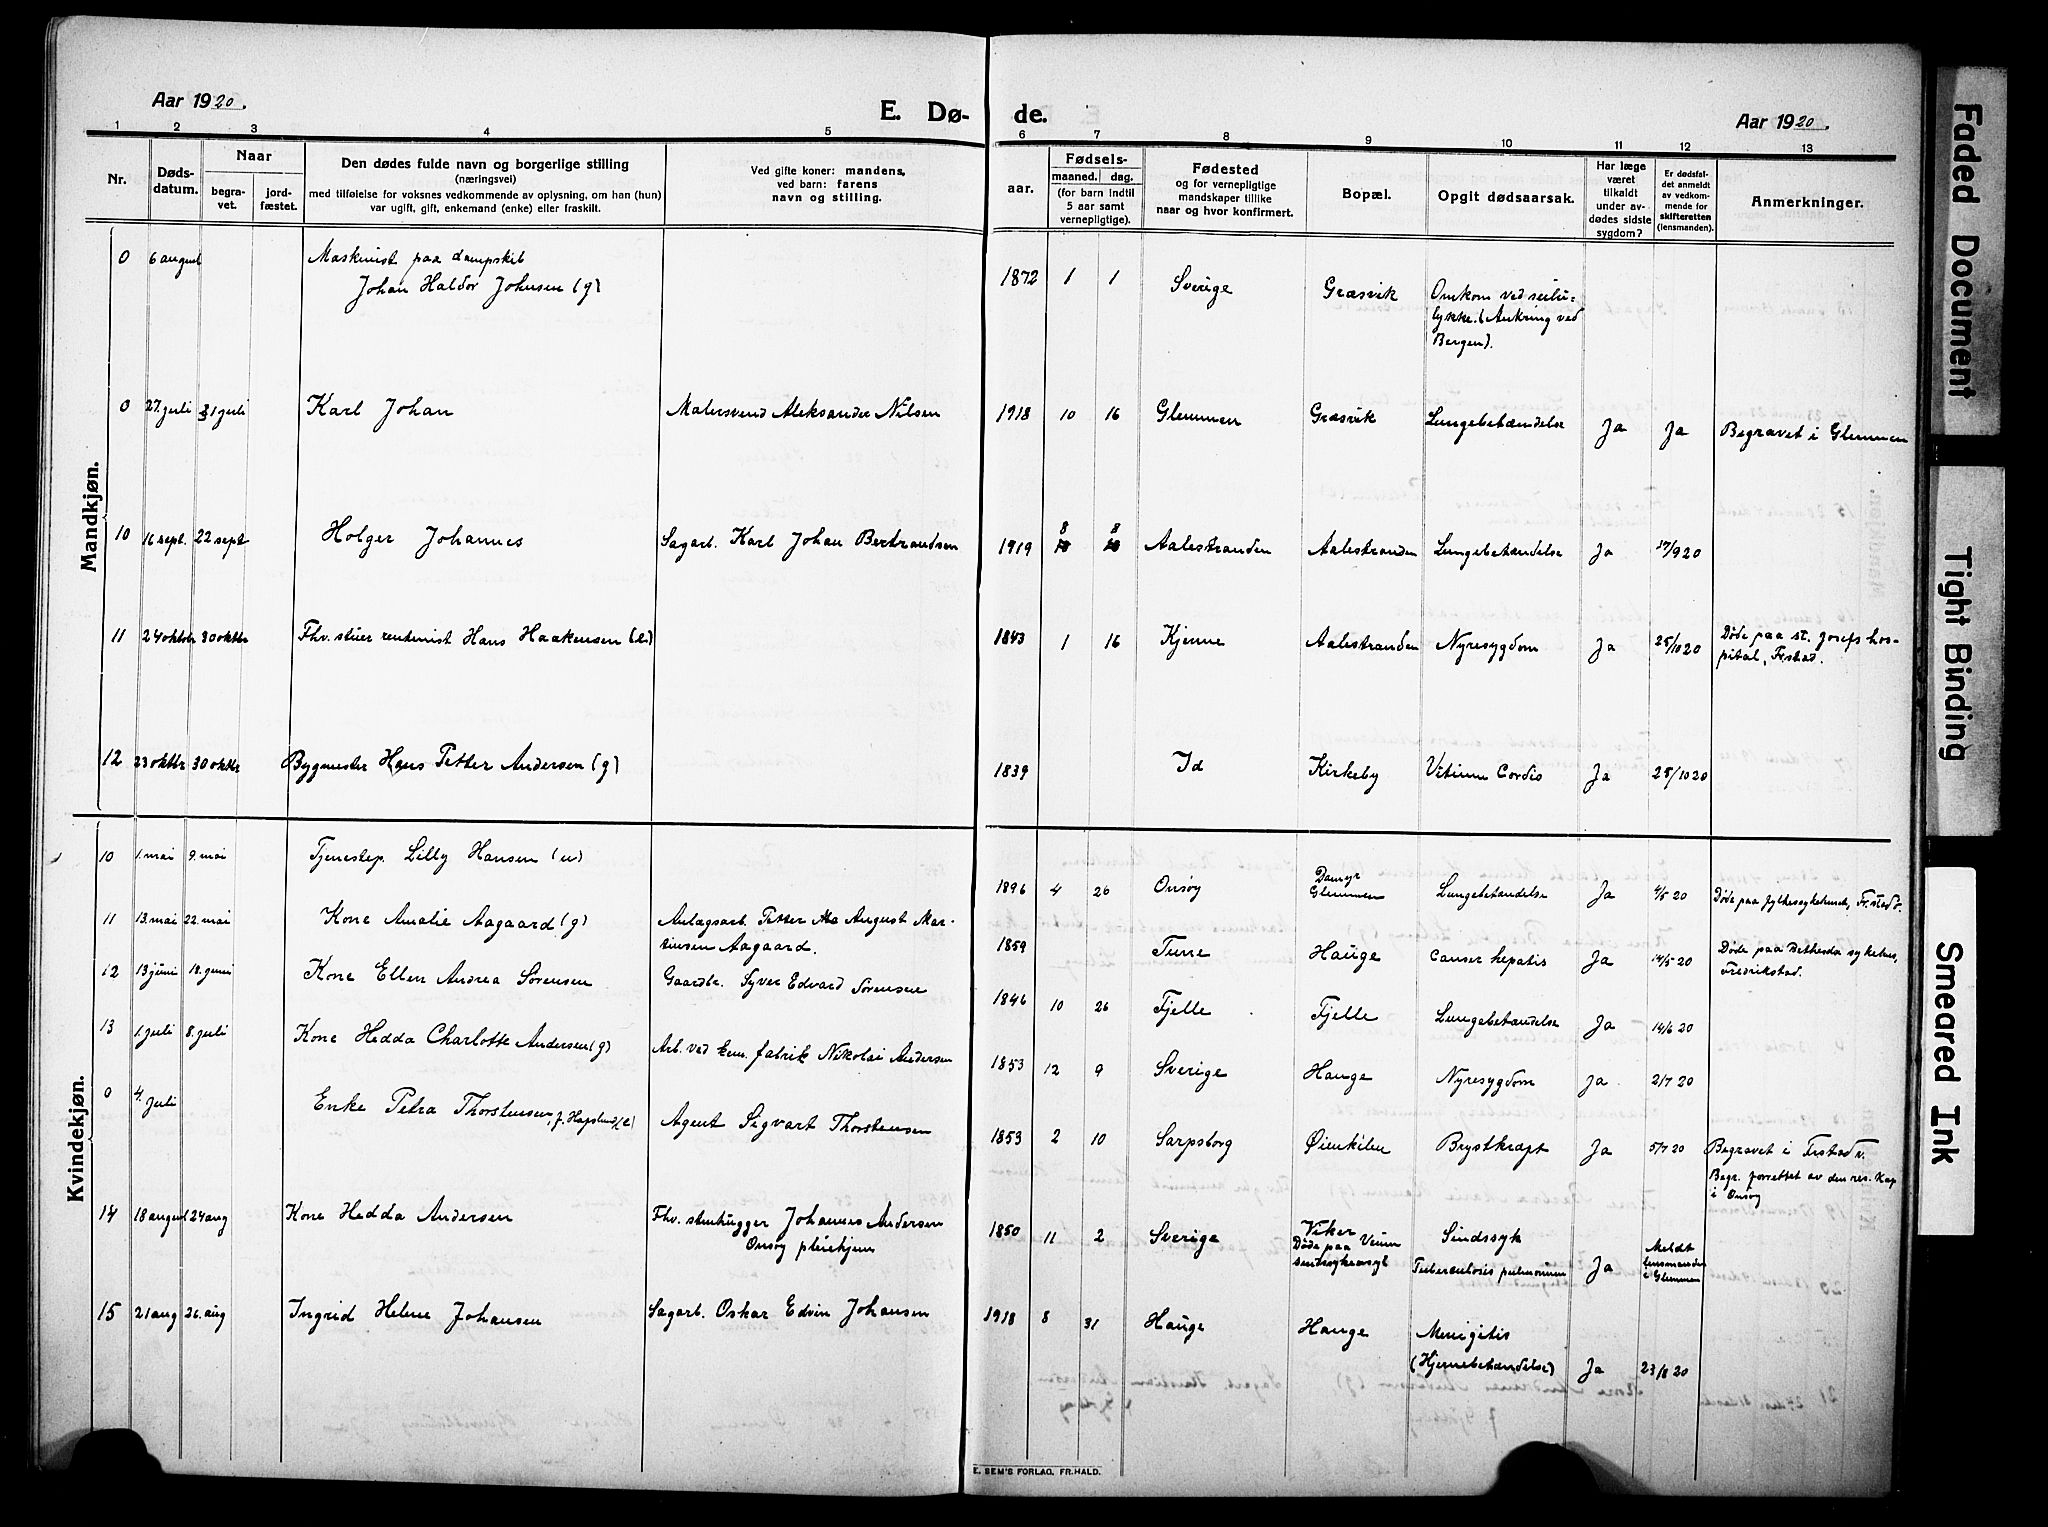 Aar 1920.
E. Dø-
de.
Aar 1920.
1 2 3 4 5 6 7 8 9 10 11 12 13
Nr.
Dødsdatum.
Naar
begravet.
jordfæstet.
Den dødes fulde navn og borgerlige stilling
(næringsvei)
med tilføielse for voksnes vedkommende av oplysning, om han (hun)
var ugift, gift, enkemand (enke) eller fraskilt.
Ved gifte koner: mandens,
ved barn: farens
navn og stilling.
Fødsels-
aar.
maaned. dag.
(for barn indtil
5 aar samt
vernepligtige).
Fødested
og for vernepligtige
mandskaper tillike
naar og hvor konfirmert.
Bopæl.
Opgit dødsaarsak.
Har læge
været
tilkaldt
under av-
dødes sidste
sygdom?
Er dødsfal-
det anmeldt
av vedkom-
mende for
skifteretten
(lensmanden).
Anmerkninger.
Mandkjøn.
0 6 august Maskinist paa dampskib
Johan Haldor Johnsen (g) 1872 1 1 Sverige Græsvik Omkom ved seilu-
lykke. (Ankring ved
Bergen).
0 27. juli 31 juli Karl Johan Malersvend Aleksander Nilsen 1918 10 16 Glemmen Græsvik Lungebetændelse Ja Ja Begravet i Glemmen
10 16 sept. 22 sept Holger Johannes Sagarb. Karl Johan Bertrandsen 1919 8 8 Aalestranden Aalestranden Lungebetændelse Ja 17/9 20
11 24 oktbr 30 oktbr Fhv. stuer rentenist Hans Haakensen (e) 1843 1 16 Kjenne Aalestranden Nyresygdom Ja 25/10 20 Døde paa st. Josefs hos-
pital, Frstad.
12 23 oktbr 30 oktbr Bygmester Hans Petter Andersen (g) 1839 Id Kirkeby Vitium Cordis Ja 25/10 20
Kvindekjøn.
10 1. mai 9. mai Tjenestep. Lilly Hansen (u) 1896 4 26 Onsøy Damyr
Glemmen Lungebetændelse Ja 4/5 20 Døde paa fylkessykehuset, Fr.stad.
11 13. mai 22. mai Kone Amalie Aagaard (g) Anlægsarb. Petter August Mar-
tinsen Aagaard. 1859 Tune Hauge Canser hepatis Ja 14/5 20 Døde paa Bethesda sykehus,
Fredrikstad.
12 13 juni 18. juni Kone Ellen Andrea Sørensen Gaardbr. Syver Edvard Sørensen 1846 10 26 Fjelle Fjelle Lungebetændelse Ja 14/6 20
13 1. juli 8. juli Kone Hedda Charlotte Andersen (g) Arb. ved kem. fabrik Nikolai Andersen 1853 12 9 Sverige Hauge Nyresygdom Ja 2/7 20
0 4. juli Enke Petra Thorstensen, f. Hapslund (e) Agent Sigvart Thorstensen 1853 2 10 Sarpsborg Øienkilen Brystkræft Ja 5/7 20 Begravet i Frstad v.
Begr. forrettet av den res. kap
i Onsøy
14 18 august 24 aug Kone Hedda Andersen Fhv. stenhugger Johannes Andersen
Onsøy pleiehjem 1850 11 2 Sverige Viker
Døde paa Veum
sindssykeasyl Sindssyk
Tuberculosis pulmonum Ja Meldt
lensmanden
i Glemmen
15 21 aug 26. aug Ingrid Helene Johansen Sagarb. Oskar Edvin Johansen 1918 8 31 Hauge Hauge Menigitis
(Hjernebetændelse) Ja 23/8 20
E. SEM'S FORLAG, FR.HALD.
Faded Document
Tight Binding
Smeared Ink